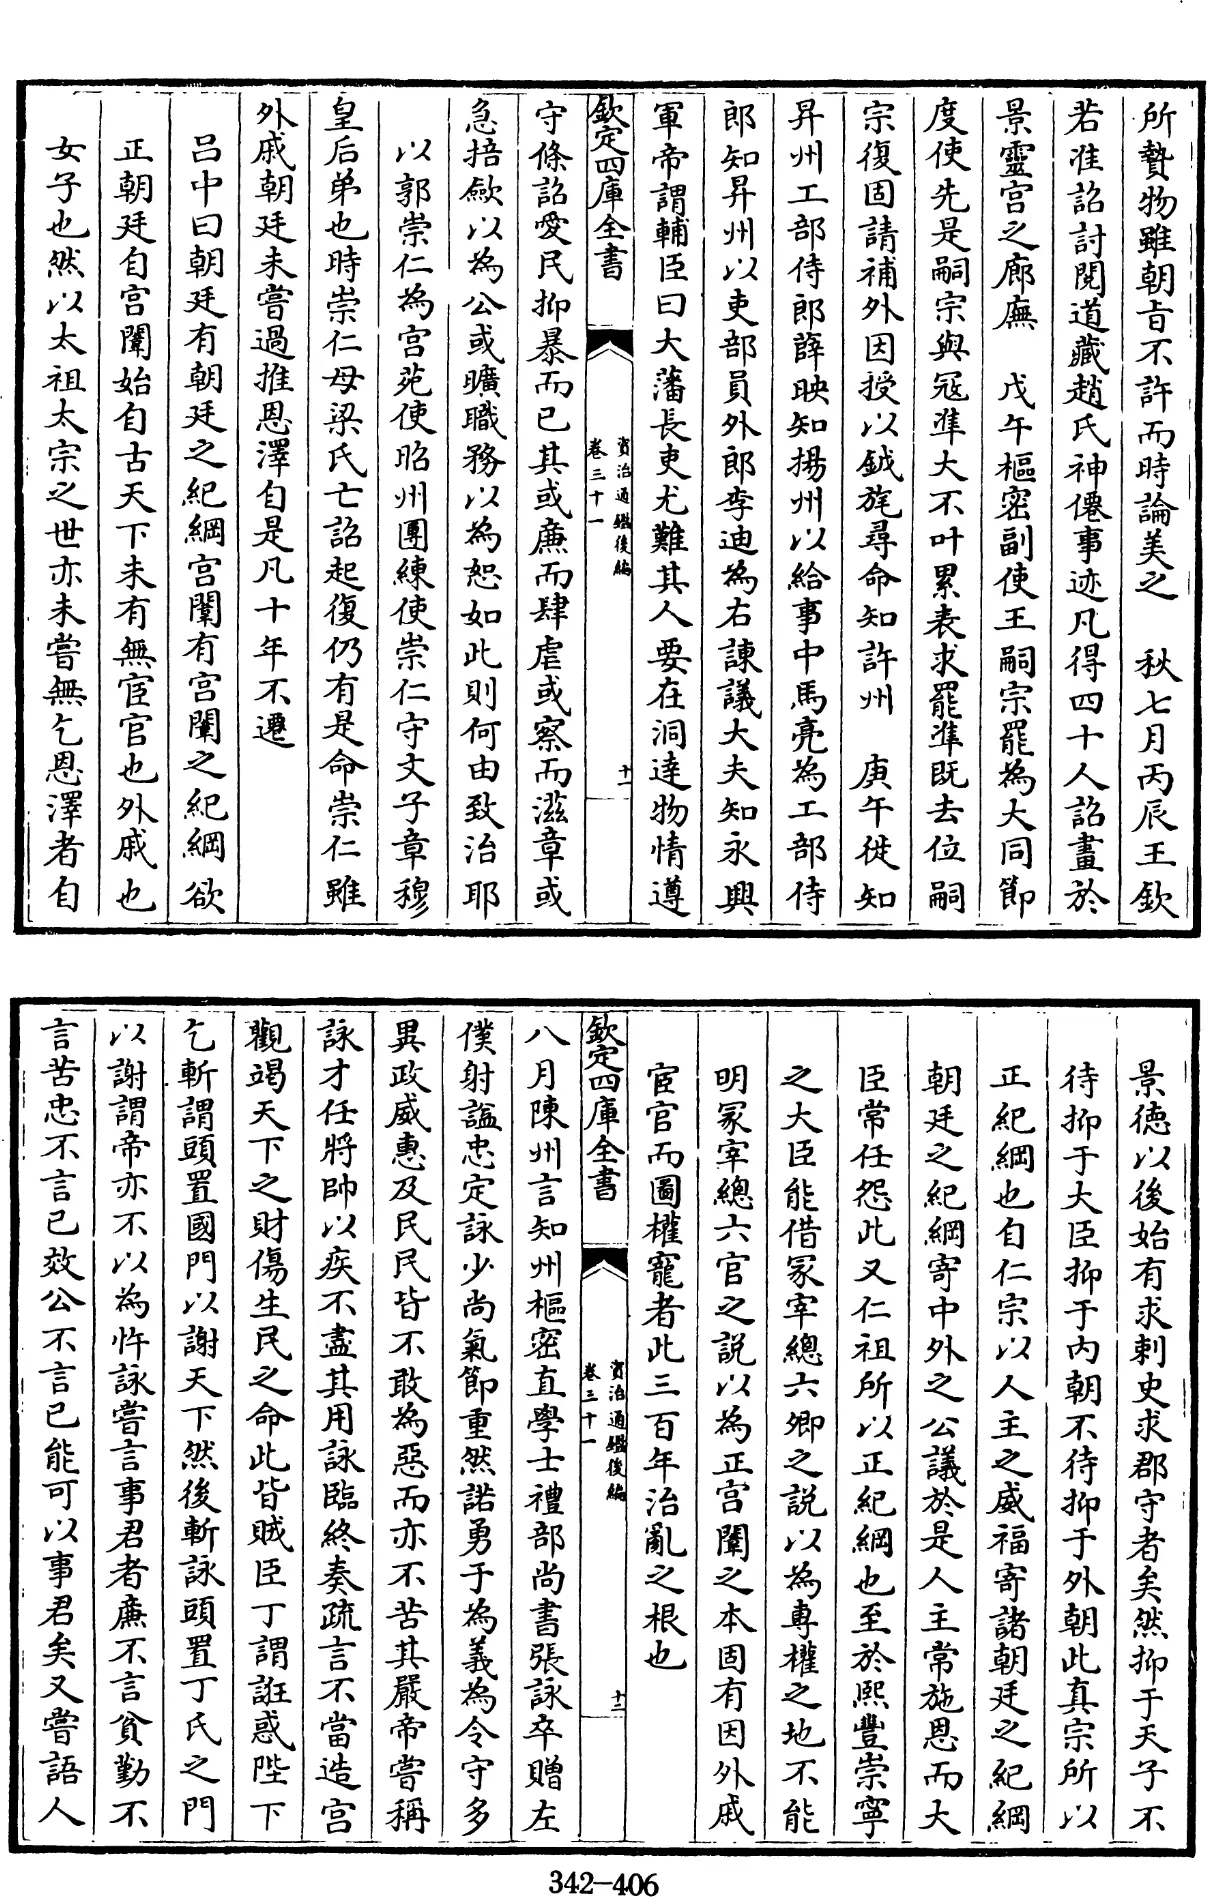 所贄物雖朝旨不許而時論美之　秋七月丙辰王欽
若准詔討閱道藏趙氏神僊事迹凡得四十人詔畫於
景靈宫之廊廡　戊午樞密副使王嗣宗罷為大同節
度使先是嗣宗與冦準大不叶累表求罷準既去位嗣
宗復固請補外因授以鉞旄尋命知許州　庚午徙知
昇州工部侍郎薛映知揚州以給事中馬亮為工部侍
郎知昇州以吏部員外郎李迪為右諫議大夫知永興
軍帝謂輔臣曰大藩長吏尤難其人要在洞達物情遵
欽定四庫全書
資治通鑑後編
卷三十一
十一
守條詔愛民抑暴而已其或亷而肆虐或察而滋章或
急掊歛以為公或曠職務以為恕如此則何由致治耶
以郭崇仁為宫苑使昭州團練使崇仁守文子章穆
皇后弟也時崇仁母梁氏亡詔起復仍有是命崇仁雖
外戚朝廷未嘗過推恩澤自是凡十年不遷
吕中曰朝廷有朝廷之紀綱宫闈有宫闈之紀綱欲
正朝廷自宫闈始自古天下未有無宦官也外戚也
女子也然以太祖太宗之世亦未嘗無乞恩澤者自
景徳以後始有求刺史求郡守者矣然抑于天子不
待抑于大臣抑于内朝不待抑于外朝此真宗所以
正紀綱也自仁宗以人主之威福寄諸朝廷之紀綱
朝廷之紀綱寄中外之公議於是人主常施恩而大
臣常任怨此又仁祖所以正紀綱也至於熙豐崇寧
之大臣能借冢宰總六卿之說以為專權之地不能
明冢宰總六官之説以為正宫闈之本固有因外戚
宦官而圖權寵者此三百年治亂之根也
欽定四庫全書
資治通鑑後編
卷三十一
十二
八月陳州言知州樞密直學士禮部尚書張詠卒贈左
僕射諡忠定詠少尚氣節重然諾勇于為義為令守多
異政威惠及民民皆不敢為惡而亦不苦其嚴帝嘗稱
詠才任將帥以疾不盡其用詠臨終奏疏言不當造宫
觀竭天下之財傷生民之命此皆賊臣丁謂誑惑陛下
乞斬謂頭置國門以謝天下然後斬詠頭置丁氏之門
以謝謂帝亦不以為忤詠嘗言事君者亷不言貧勤不
言苦忠不言已效公不言已能可以事君矣又嘗語人
342-406